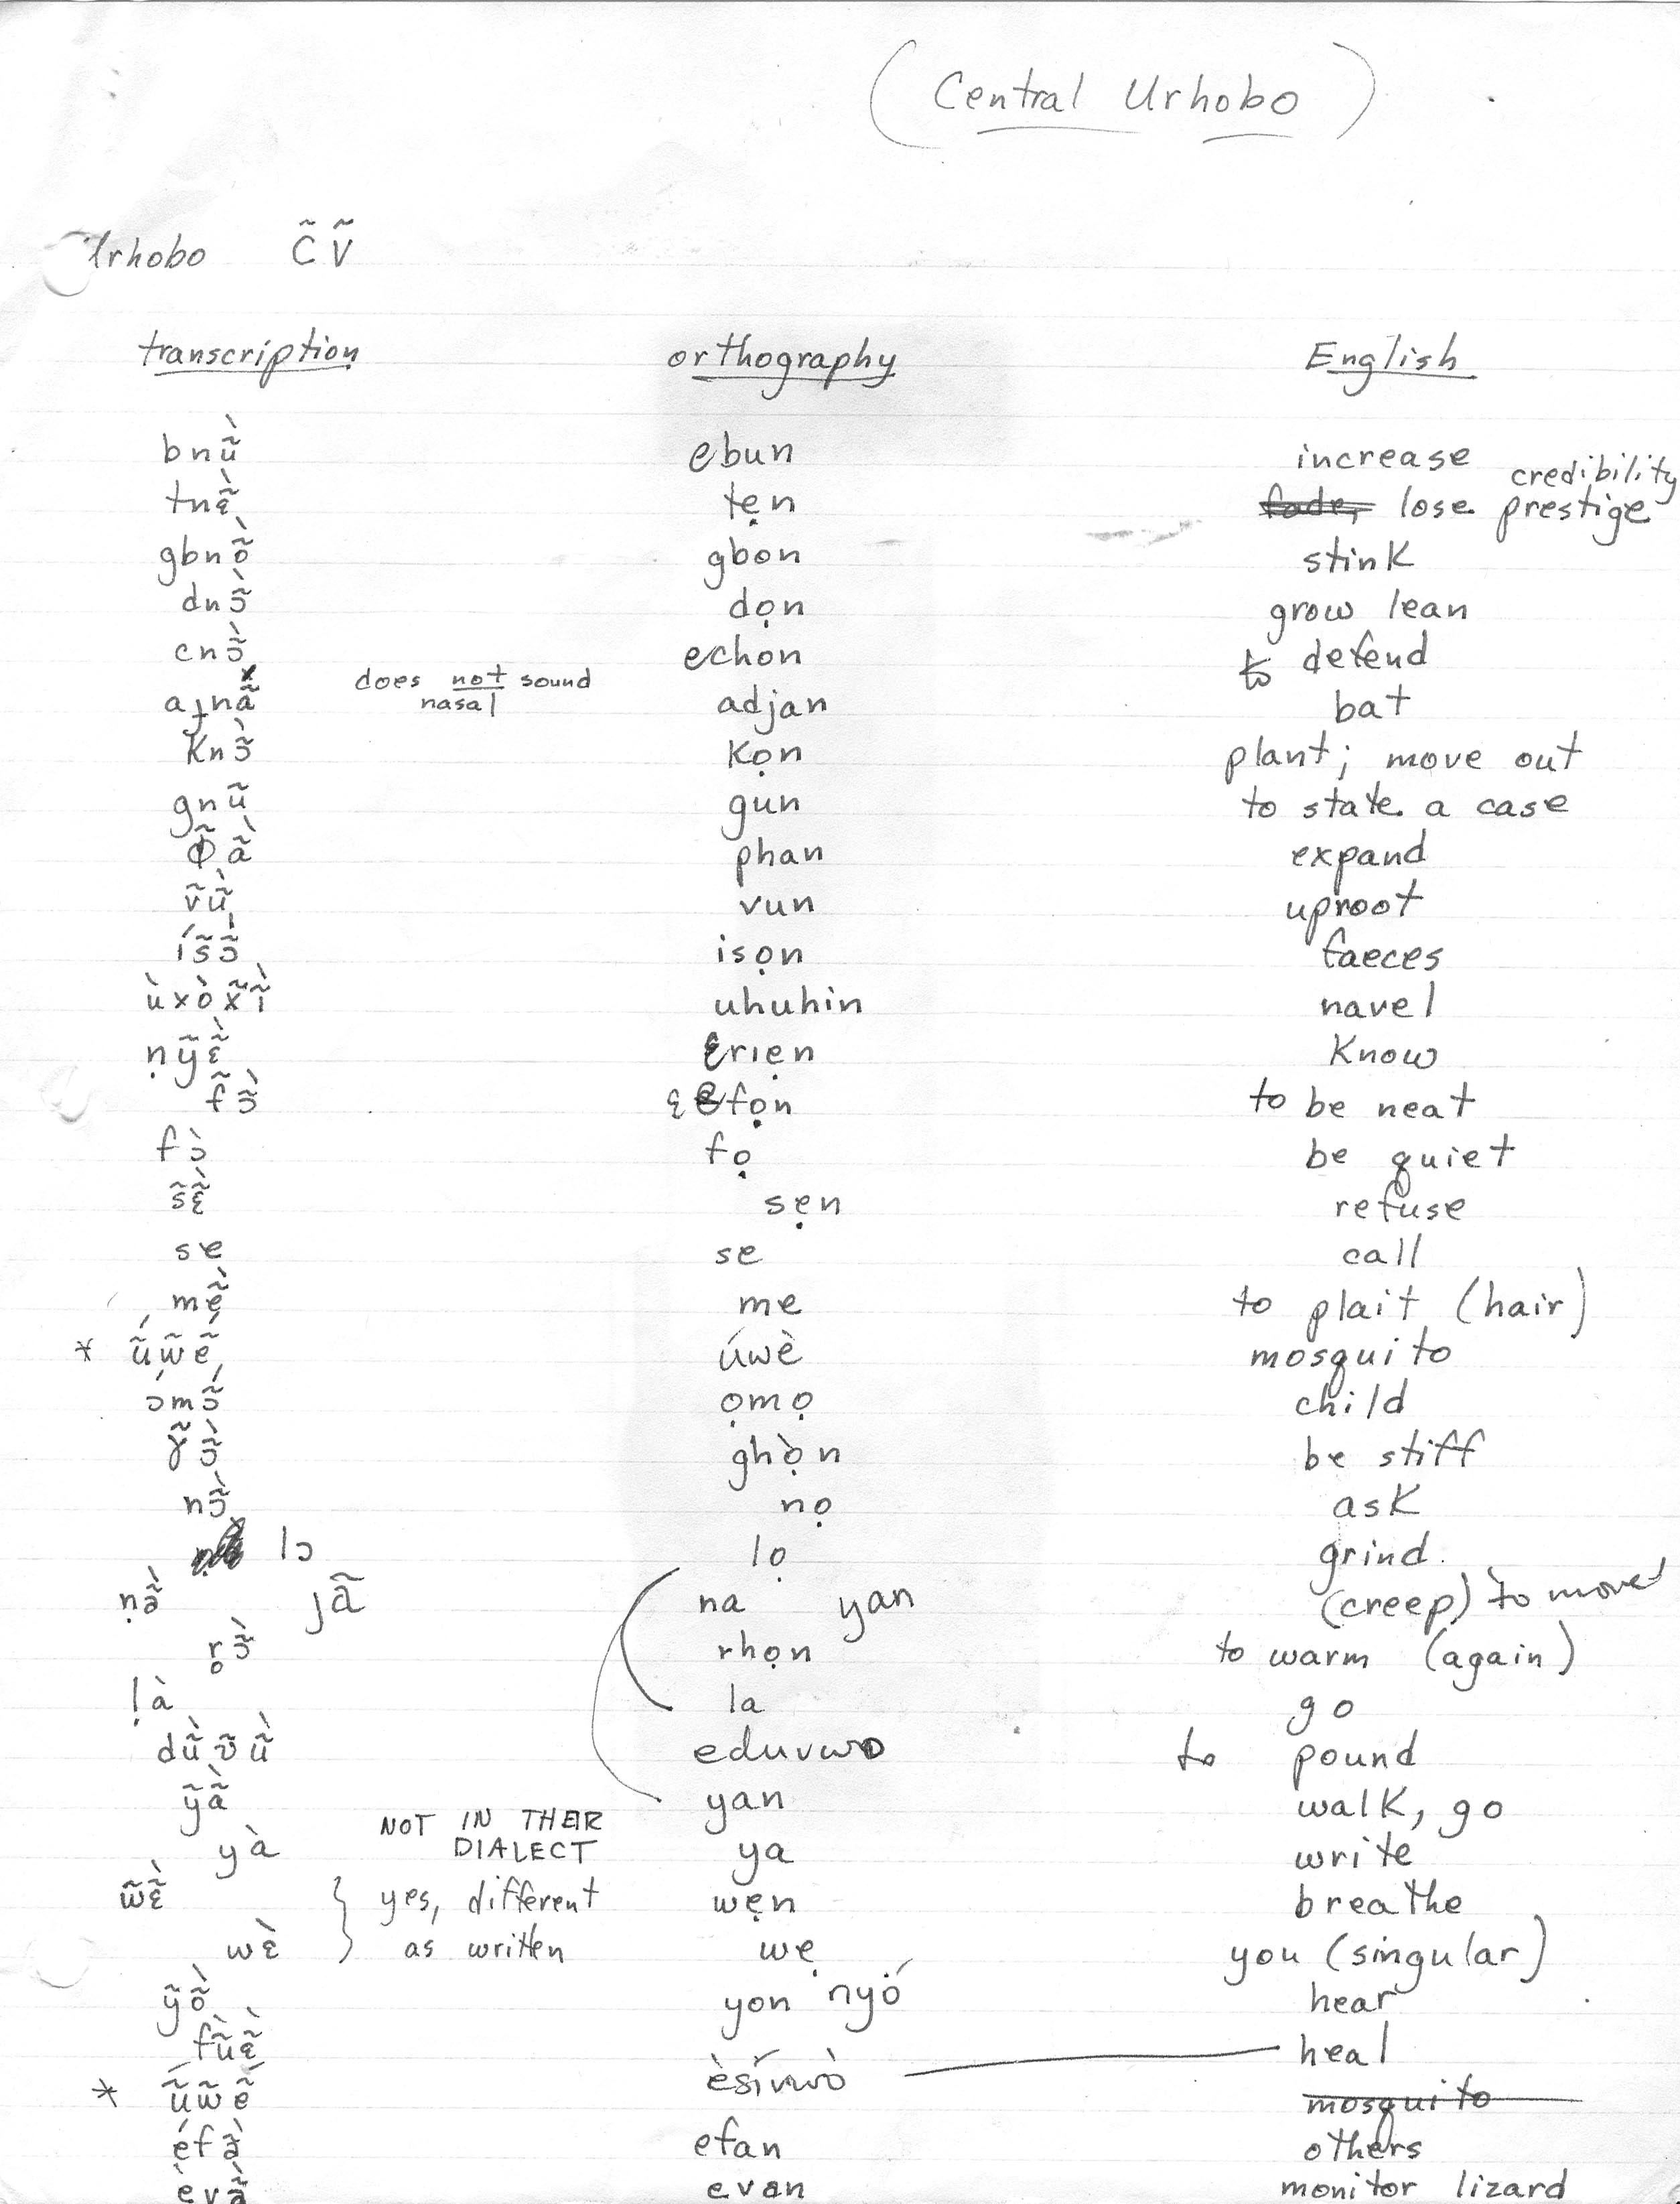 (Central Urhobo)
Urhobo C̃ Ṽ
transcription orthography English
bnṹ ebun increase
tnɛ̃̀ tẹn fade, lose prestige credibility
gbnõ̀ gbon stink
dnɔ̃́ dọn grow lean
cnɔ̃́ echon to defend
aɟnã does not sound nasal adjan bat
knɔ̃ kọn plant; move out
gnũ gun to state a case
ɸ̃ ã́ phan expand
ṽṹ vun uproot
ís̃ɔ̃́ isọn faeces
ùxòx̃ĩ̀ uhuhin navel
ṇỹɛ̃̀ Ɛriẹn know
f̃ɔ̃̀ ɛfọn to be neat
fɔ̀ fọ be quiet
s̃ɛ̃́ sẹn refuse
se se call
mẽ́ me to plait (hair)
* ṹw̃ẽ́ úwè mosquito
ɔ́mɔ̃́ ọmọ child
ɣ̃ɔ̃̀ ghọ̀n be stiff
nɔ̃̀ nọ ask
lɔ lọ grind
ṇã̀ ȷã na yan (creep) to move
r̥ɔ̃̀ rhọn to warm (again)
ḷà la go
dũ̀ʋ̃ũ̀ eduvwo to pound
ỹã̀ yan walk, go
yà NOT IN THEIR DIALECT ya write
w̃ɛ̃̀ } yes, different wẹn breathe
wɛ̀ as written wẹ you (singular)
ỹṍ yon nyó hear
f̃ũ̀ɛ̃̀ èsĭvwò heal
* ṹw̃ẽ́ mosquito
éfã̀ efan others
évã̀ evan monitor lizard